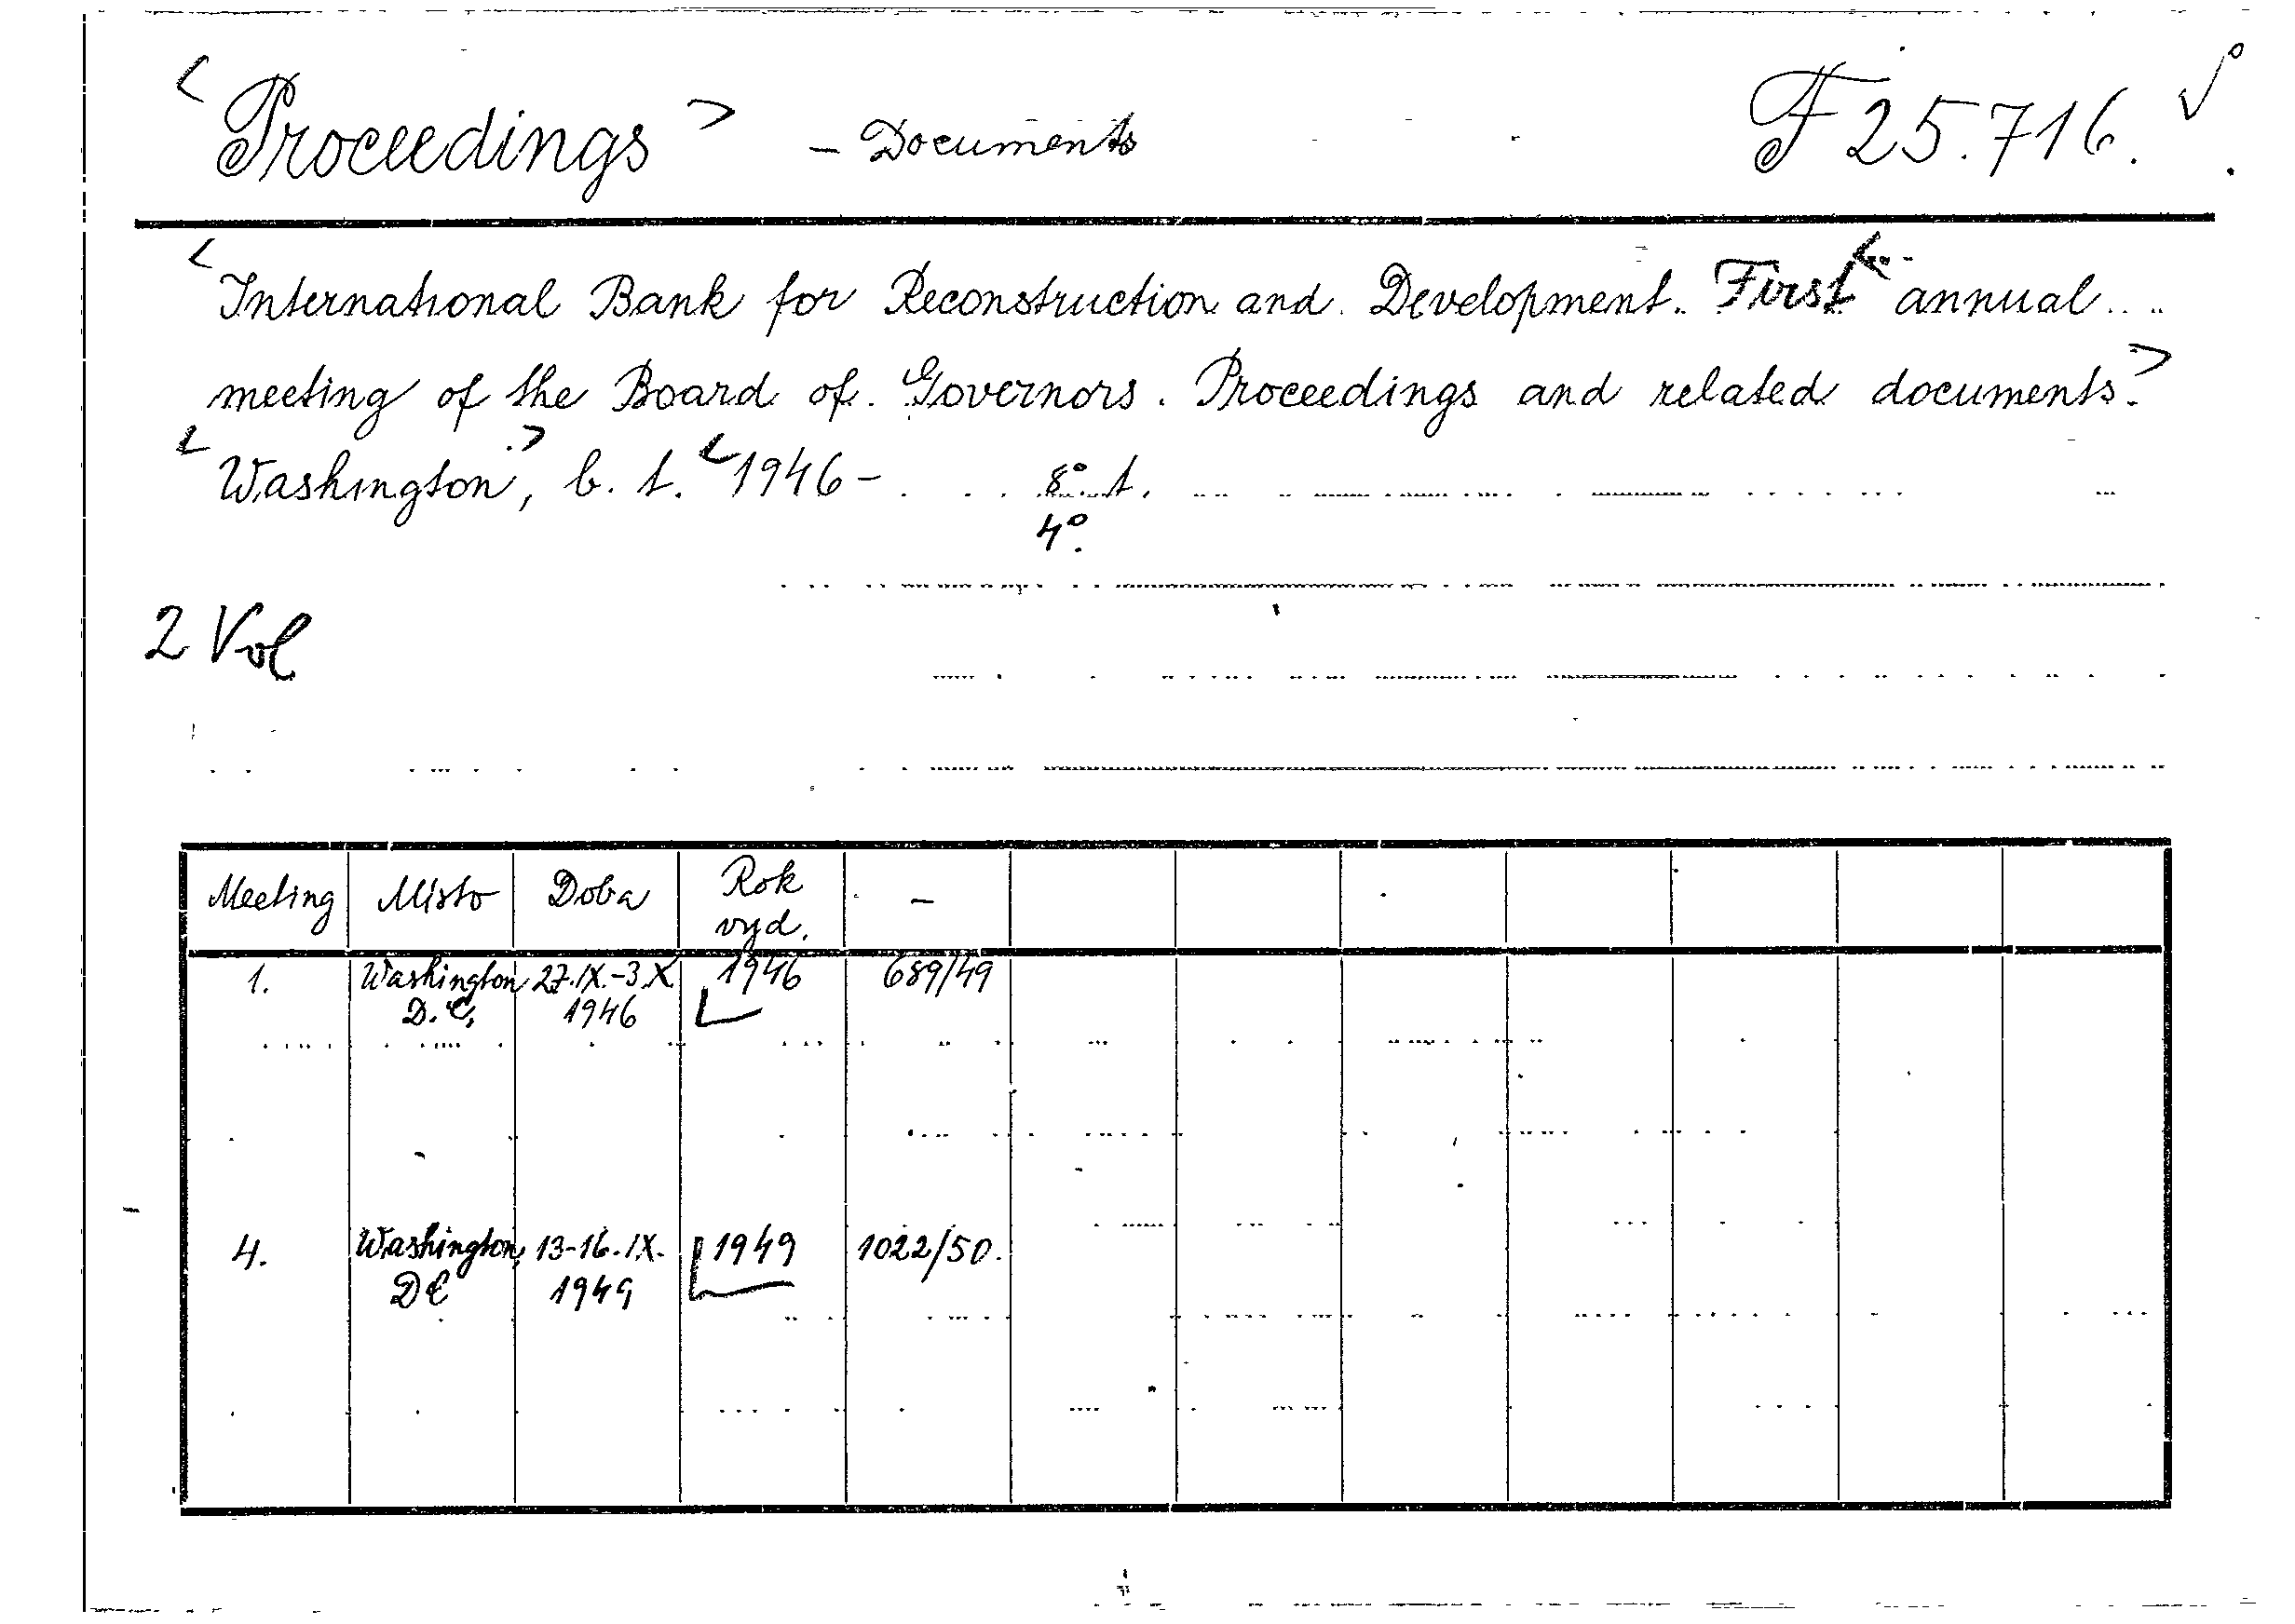 <Proceedings> - Documents F 25.716.
<International Bank for Reconstruction and Development. First< annual
meeting of the Board of Governors. Proceedings and related documents.>
<Washington>, b. t. <1946- 8° t.
4°.
2 Vol
Meeting Místo Doba Rok vyd. -
1. Washington 27.IX.-3.X. 1946 689/49
D.C. 1946
4. Washington, 13-16.IX. 1949 1022/50.
DC 1949